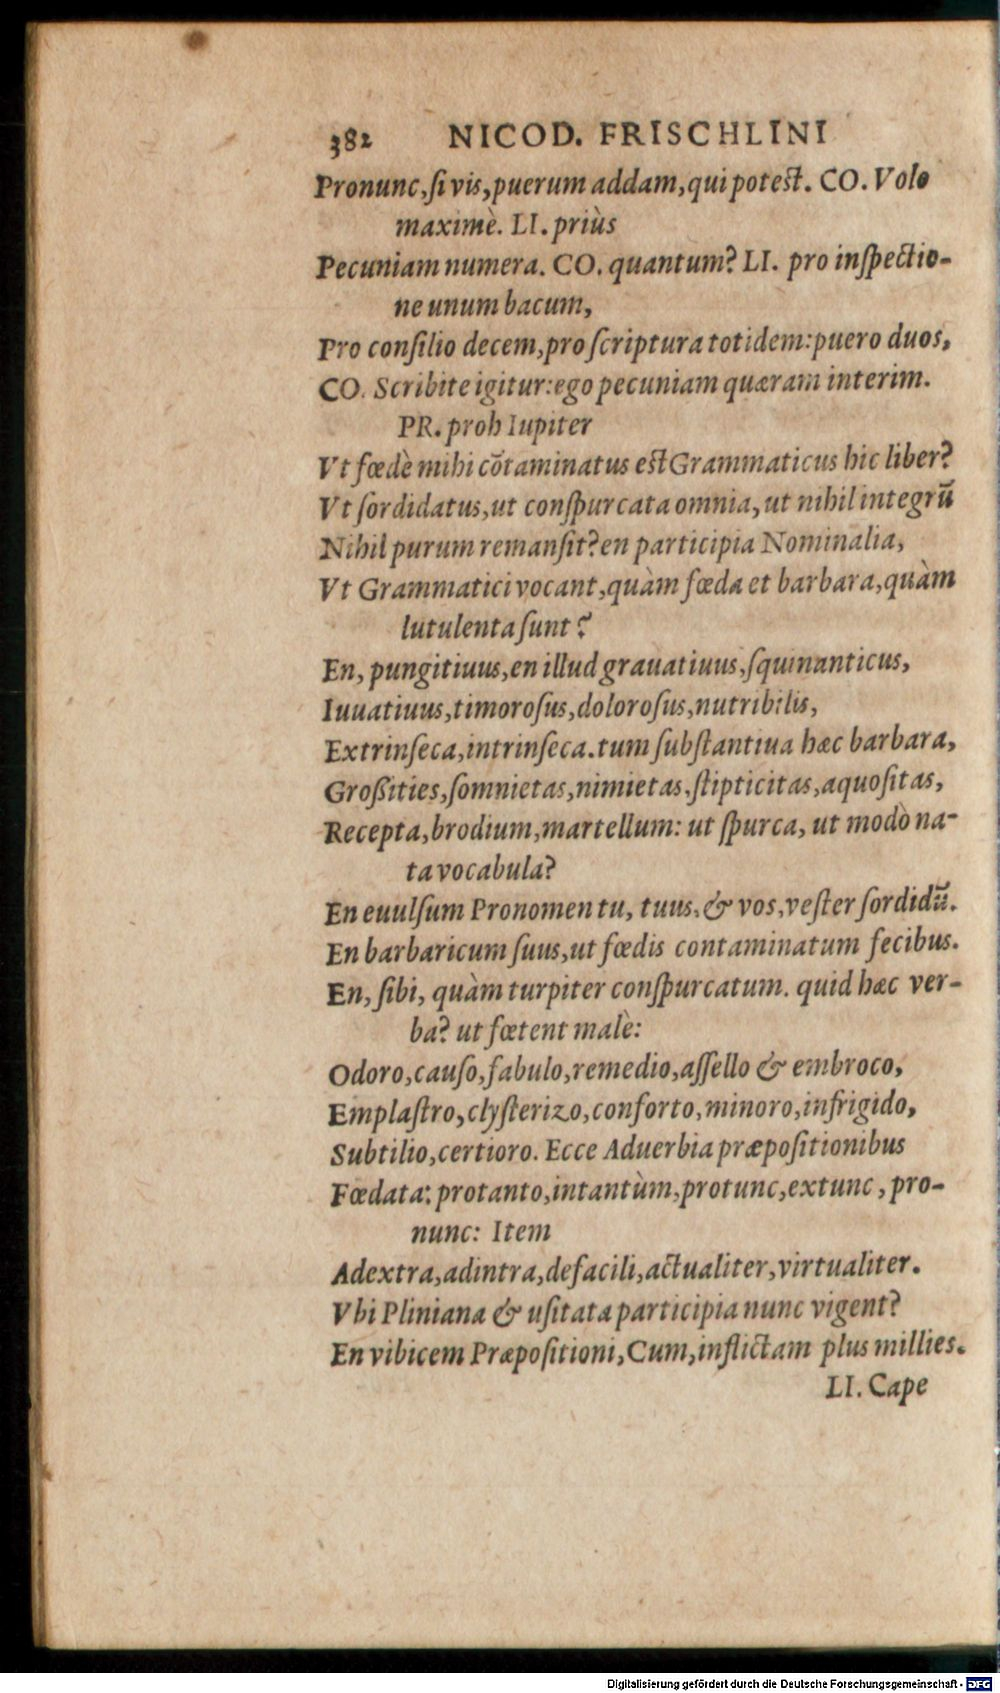 382 NICOD. FRISCHLINI
Pronunc,ſi vis,puerum addam,qui poteſt. CO. Volo
maximè. LI. priùs
Pecuniam numera. CO. quantum? LI. pro inſpectio-
ne unum bacum,
Pro conſilio decem,pro ſcriptura totidem:puero duos,
CO. Scribite igitur:ego pecuniam quæram interim.
PR. proh Iupiter
Vt fœdè mihi cōtaminatus eſt Grammaticus hic liber?
Vt ſordidatus,ut conſpurcata omnia,ut nihil integrū
Nihil purum remanſit?en participia Nominalia,
Vt Grammatici vocant,quàm fœda et barbara,quàm
lutulenta ſunt?
En, pungitiuus,en illud grauatiuus,ſquinanticus,
Iuuatiuus,timoroſus,doloroſus,nutribilis,
Extrinſeca,intrinſeca.tum ſubſtantiua hæc barbara,
Großities,ſomnietas,nimietas,ſtipticitas,aquoſitas,
Recepta,brodium,martellum: ut ſpurca, ut modò na-
ta vocabula?
En euulſum Pronomen tu, tuus,& vos,veſter ſordidū.
En barbaricum ſuus,ut fœdis contaminatum fecibus.
En, ſibi, quàm turpiter conſpurcatum. quid hæc ver-
ba? ut fœtent malè:
Odoro,cauſo,fabulo,remedio,aſſello & embroco,
Emplaſtro,clyſterizo,conforto,minoro,infrigido,
Subtilio,certioro. Ecce Aduerbia præpoſitionibus
Fœdata: protanto,intantùm,protunc,extunc, pro-
nunc: Item
Adextra,adintra,defacili,actualiter,virtualiter.
Vbi Pliniana & uſitata participia nunc vigent?
En vibicem Præpoſitioni,Cum,inflictam plus millies.
LI. Cape
Digitalisierung gefördert durch die Deutsche Forschungsgemeinschaft - DFG